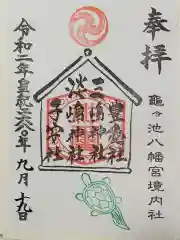 奉拝
龜ヶ池八幡宮境内社
豊受社
三嶋神社
淡嶋神社
子安社
令和二年皇紀二六八〇年九月十九日